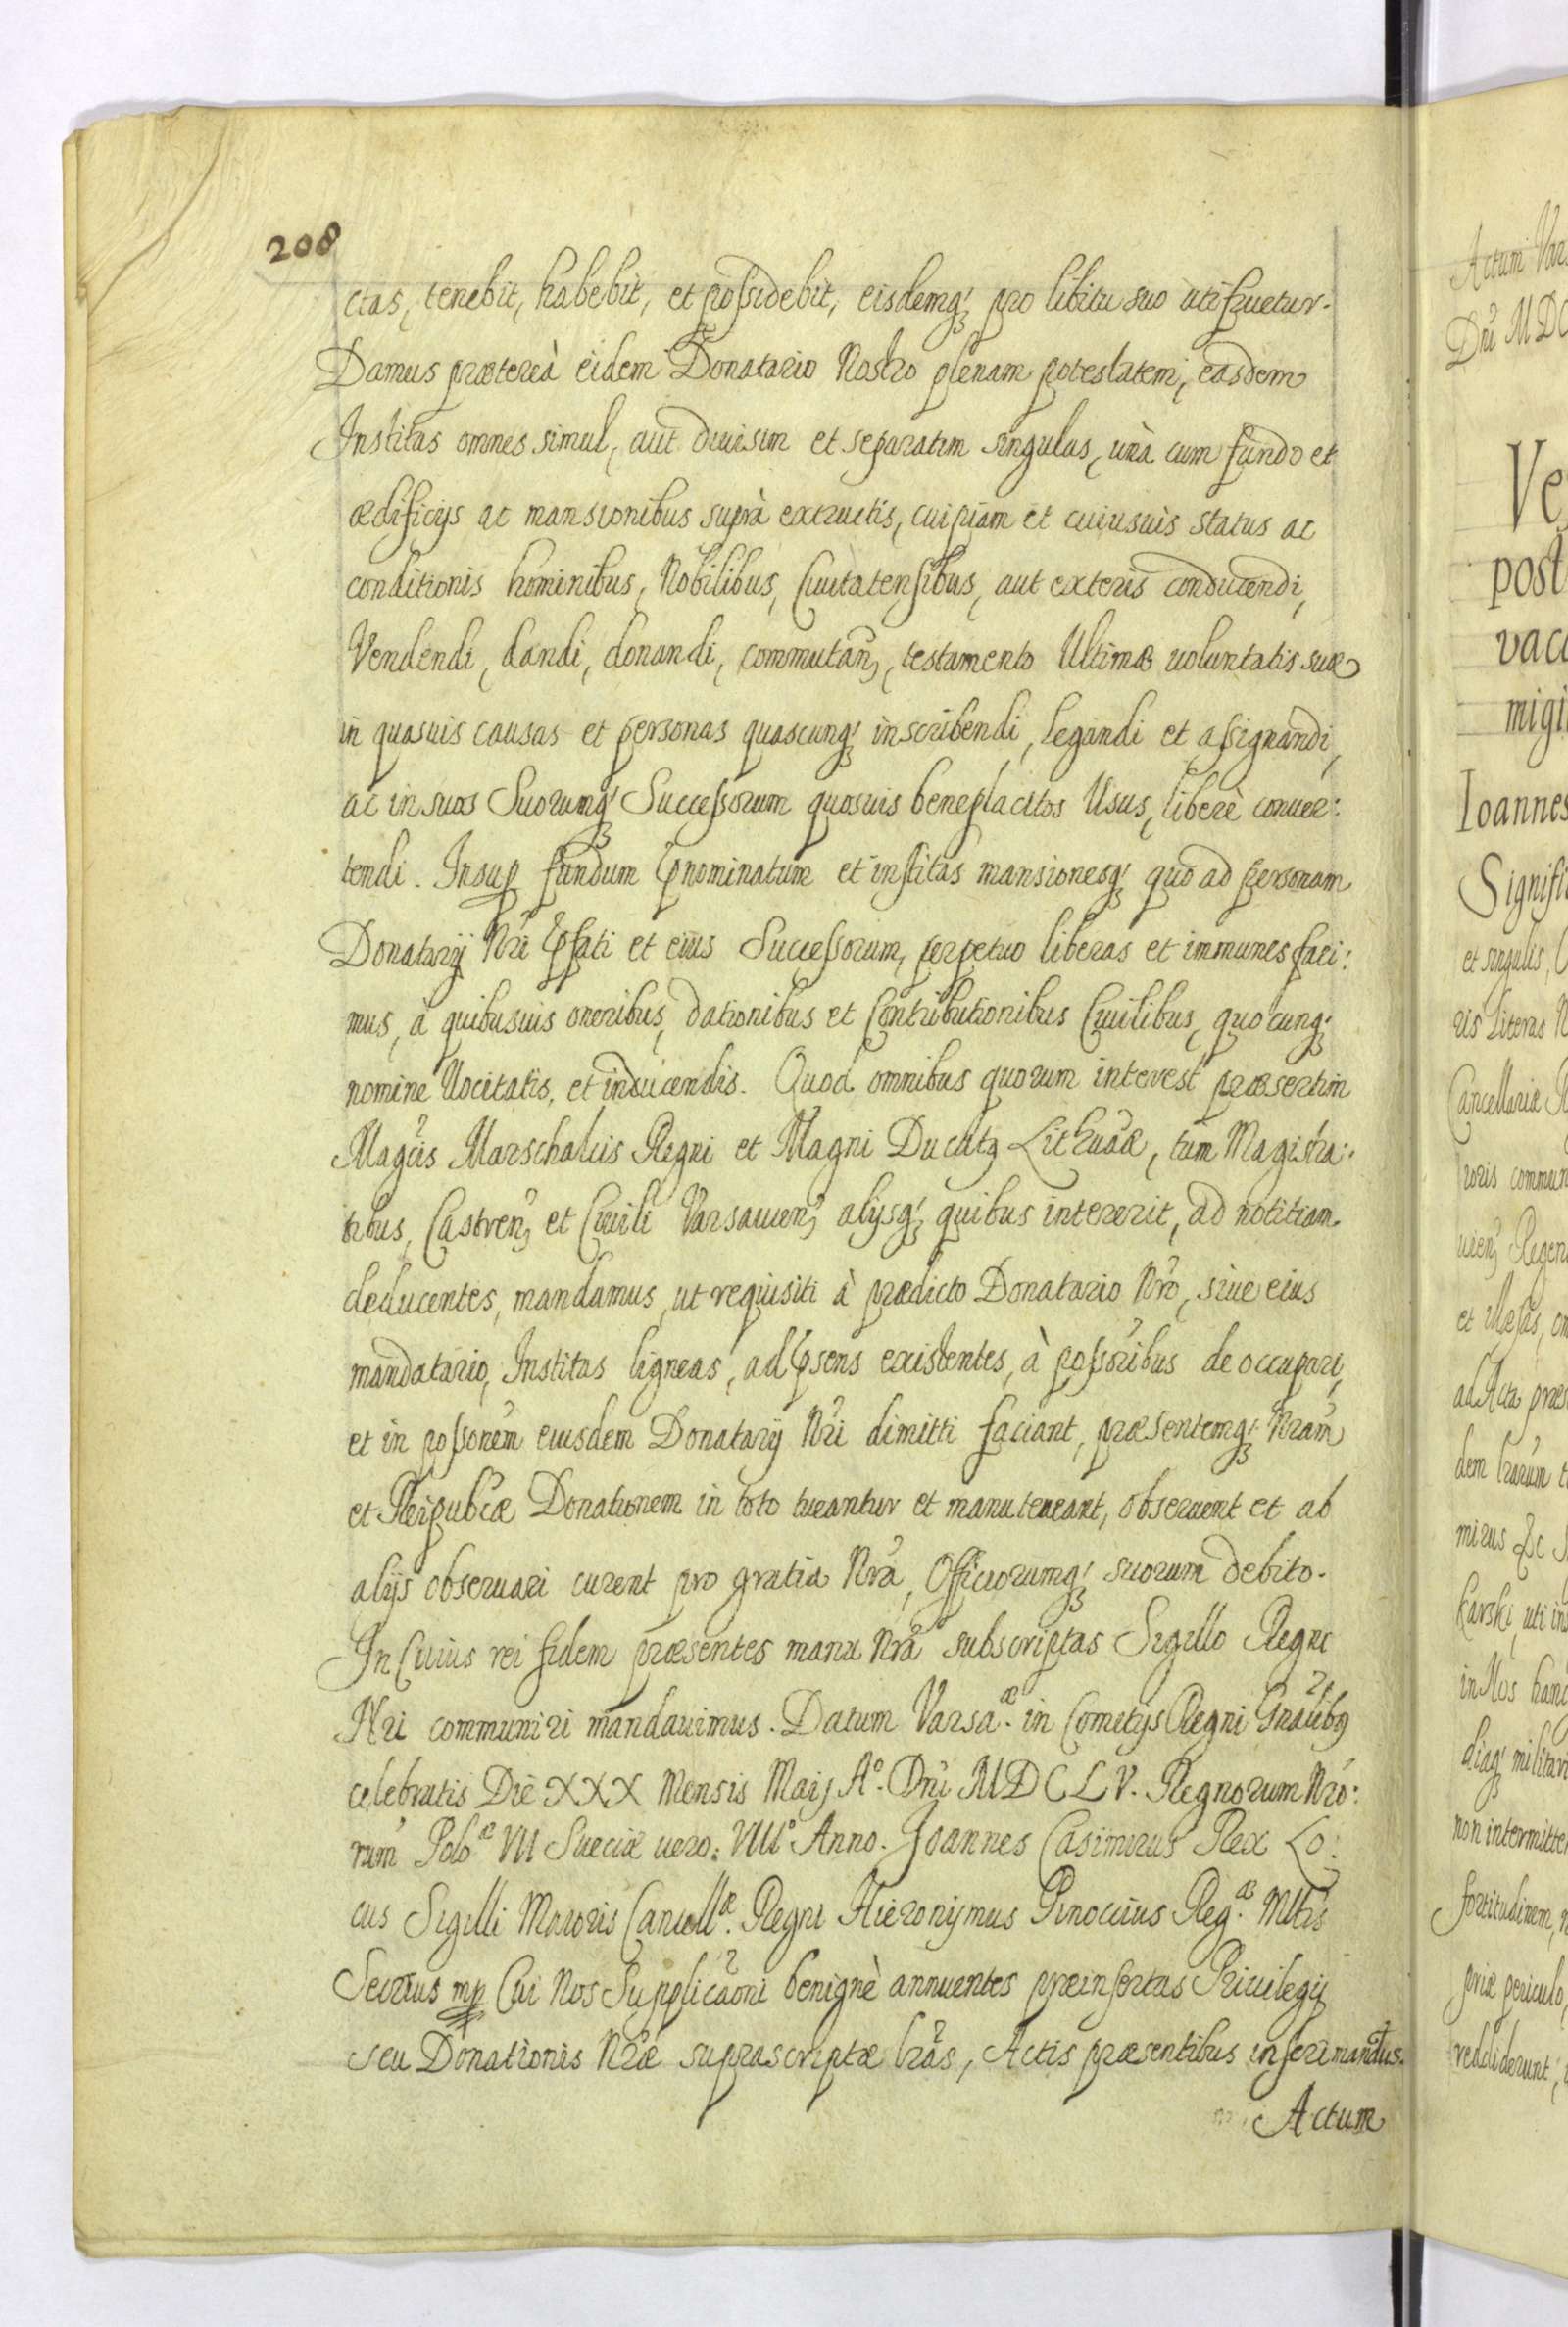 208
ctas, tenebit, habebit, et possidebit, eisdemq; pro libitu suo uti fruetur.
Damus prætereà eidem Donatario Nostro plenam potestatem, easdem
Institas omnes simul, aut diuisim et separatim singulas, unà cum fundo et
ædificijs ac mansionibus suprà extructis, cuipiam et cuiusuis status ac
conditionis hominibus, Nobilibus, Ciuitatensibus, aut exteris conducendi,
Vendendi, dandi, donandi, commutan̄, testamento Ultimæ uoluntatis suæ
in quasuis causas et personas quascunq; inscribendi, legandi et assignandi,
ac in suos Suorumq; Successorum quosuis beneplacitos Usus, liberè conuer:
tendi. Insup fundum pnominatum et institas mansionesq; quo ad personam
Donatarij Nri pfati et eius Successorum, perpetuo liberas et immunes faci:
mus, à quibusuis oneribus, dationibus et Contributionibus Ciuilibus, quocunq;
nomine Uocitatis, et inducendis. Quod omnibus quorum interest præsertim
Magcis Marschalcis Regni et Magni Ducatq Lithuaæ, tum Magistra:
tibus, Castren; et Ciuili Varsauien; alijsq; quibus intererit, ad notitiam
deducentes, mandamus, ut requisiti à prædicto Donatario Nro, siue eius
mandatario, Institas ligneas, ad psens existentes, à possoribus deoccupari,
et in possonem eiusdem Donatarij Nri dimitti faciant, præsentemq; Nram
et Reipubcæ Donationem in toto tueantur et manuteneant, obseruent et ab
alijs obseruari curent pro gratia Nra, Officiorumq; suorum debito.
In Cuius rei fidem præsentes manu Nrā subscriptas Sigillo Regni
Nri communiri mandauimus. Datum Varsaæ. in Comitijs Regni Gnālibq
celebratis Die XXX Mensis Maij Aº. Dni MDCLV. Regnorum Nro:
rum Poloæ VII Sueciæ uero: VIIIº Anno. Joannes Casimirus Rex Lo:
cus Sigilli Maioris Cancellæ. Regni Hieronijmus Pinoccius Regæ. Mttis
Secrius mp Cui Nos Supplicaōni benignè annuentes præinsertas Priuilegij
seu Donationis Nræ suprascriptæ lrās, Actis præsentibus inseri mandus.
Actum
Actum Var
Dni MDC
Ve
post
vaca
migi
Ioannes
Signifi
et singulis,
ris Literas N
Cancellariæ R
ioris commun
uien; Regen
et illesas, om
ad Acta præs
dem lrarum t
mirus &c
karski, uti in
in Nos hanc
diaq; militari
non intermitte
fortitudinem,
priæ periculo,
reddiderunt,